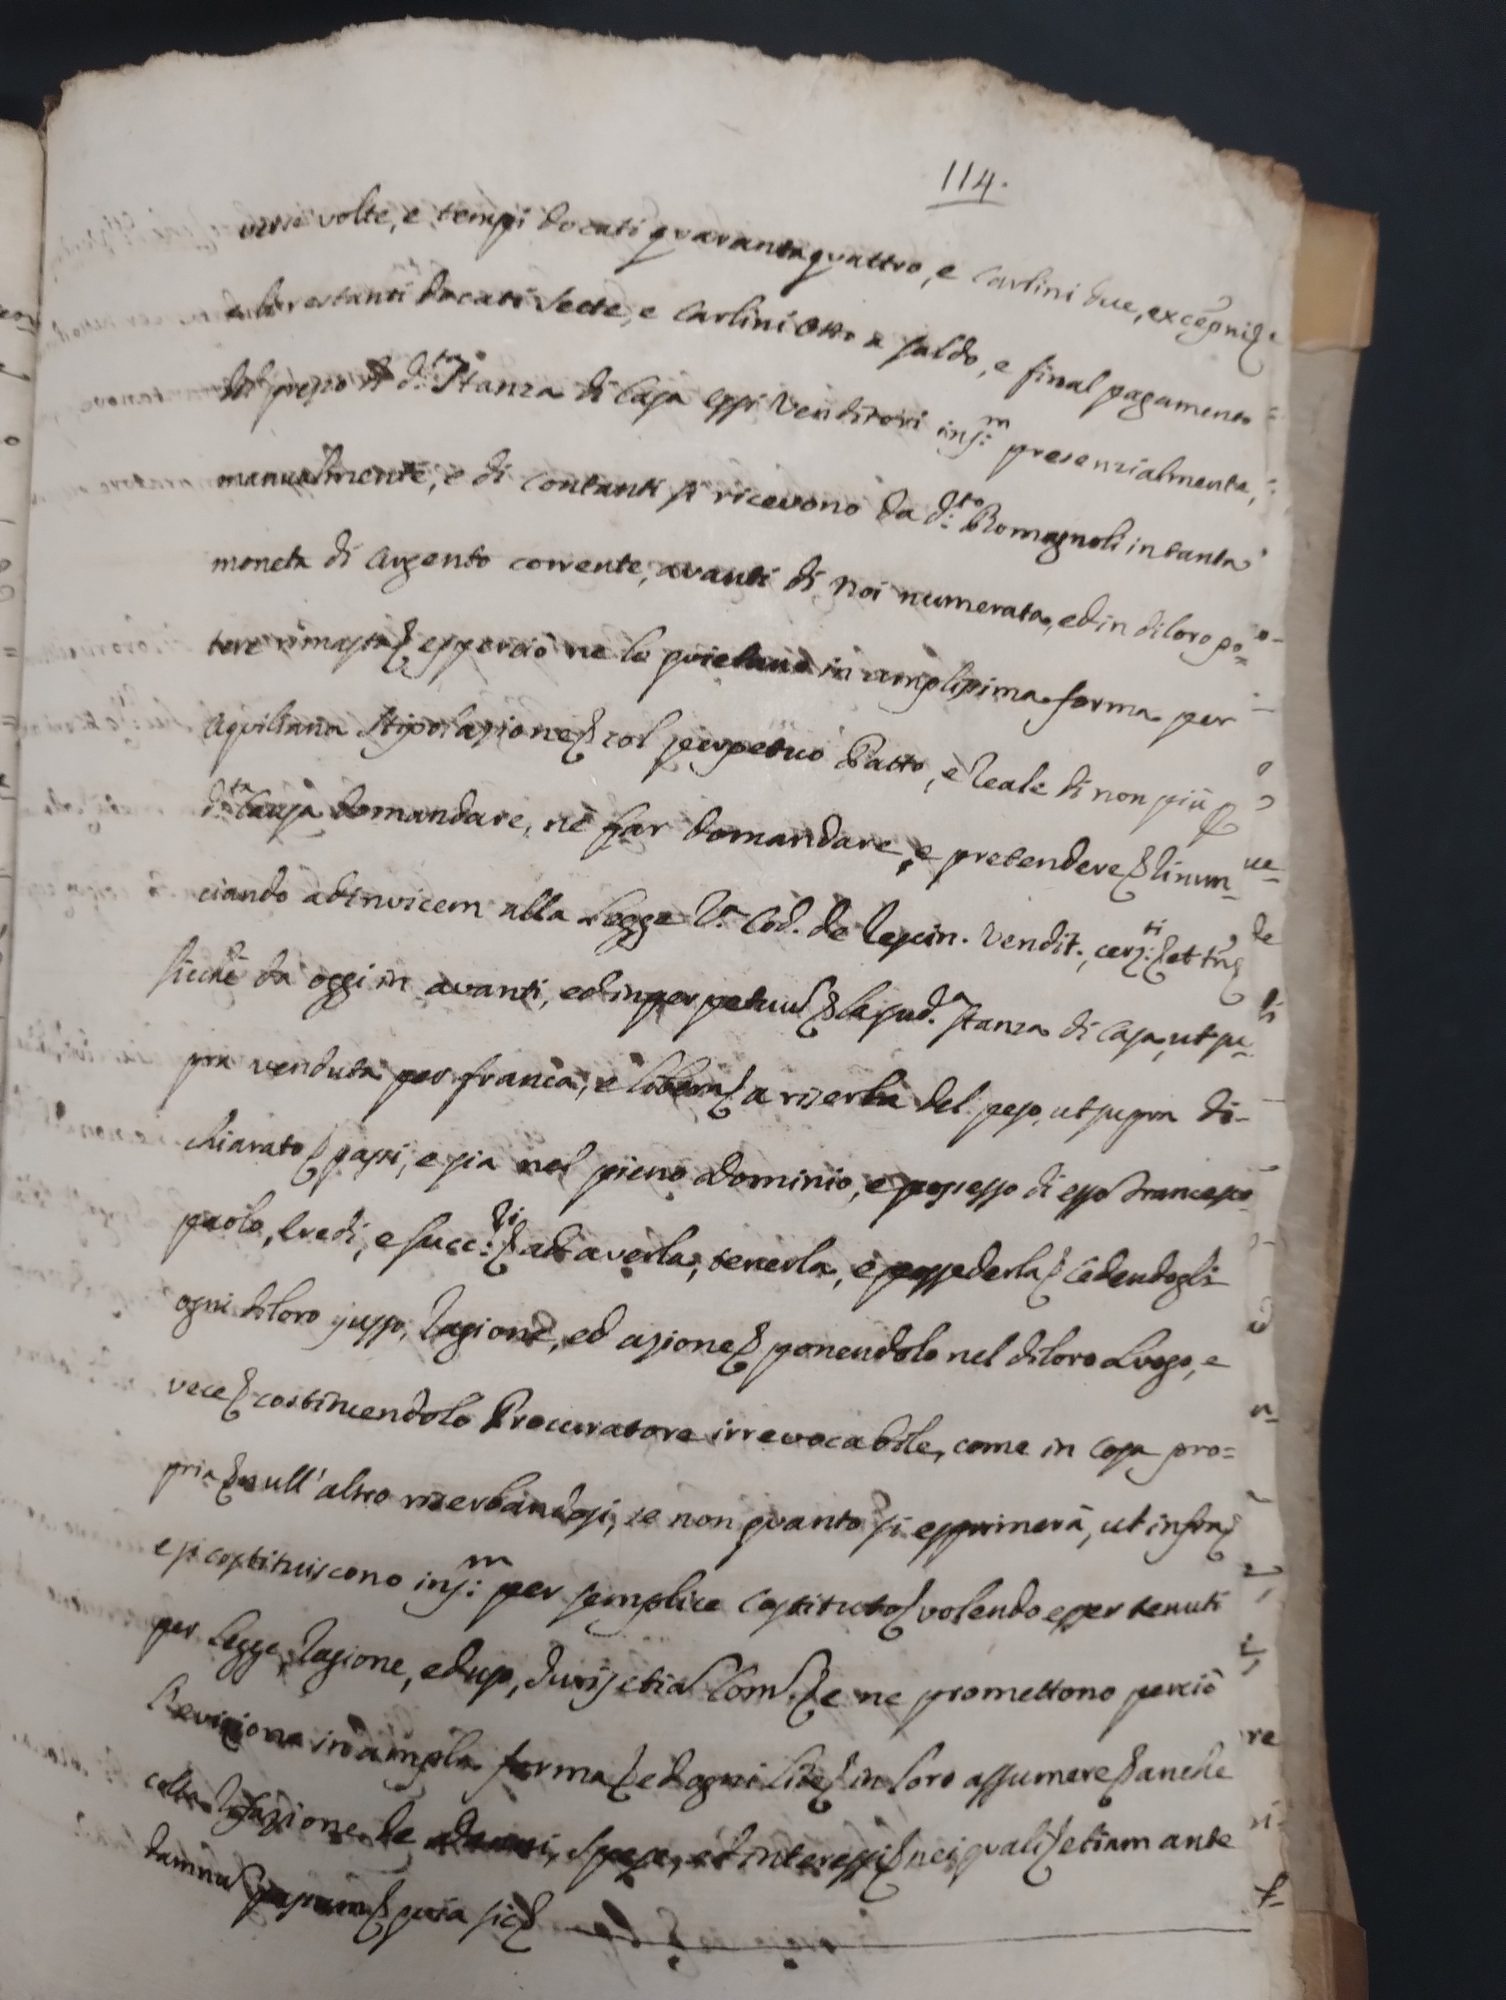 114.
verse volte, e tempi docati quarantaquattro, e carlini due, excepnis
e li restanti docati sette, e carlini otto a saldo, e final pagamento
del prezzo di d.ta Stanza di Casa essi Venditori ins:m presenzialmente,
manualmente, e di contanti si ricevono da d:to Romagnoli in tanta
moneta di argento corrente, avanti di noi numerata, ed in di loro po=
tere rimasta& epperciò ne lo quietano in amplissima forma per
Aquiliana Stipolazione& col perpetuo Patto, e reale di non più p
d:ta Causa domandare, nè far domandare, e pretendere& Rinun=
ciando adinvicem alla Legge 2.a Cod. de rescin. vendit., cerz:ti& et
sicchè da oggi in avanti, ed in perpetuu& la sud.a stanza di Casa, ut su=
pra venduta per franca, e libera& a riserba del peso, ut supra di=
chiarato& passi, e sia nel pieno dominio, e possesso di esso Francesco
paolo, Eredi, e succ:ri& ad averla, tenerla, e possederla& Cedendogli
ogni di loro jusso, ragione, ed azione& ponendolo nel di loro Luogo, e
vece& costituendolo Procuratore irrevocabile, come in cosa pro=
pria& null' altro riserbandosi, se non quanto si esprimerà, ut infra&
e si costituiscono ins:m per semplice Costituto& volendo esser tenuti
per Legge, ragione, ed uso, Juris etia Com& e ne promettono perciò
l'evizione in ampla forma& ed ogni lite& in loro assumere& anche
colla refazione de danni, spese, ed interessi& nei quali& etiam ante
damnu& passum& quia sic&